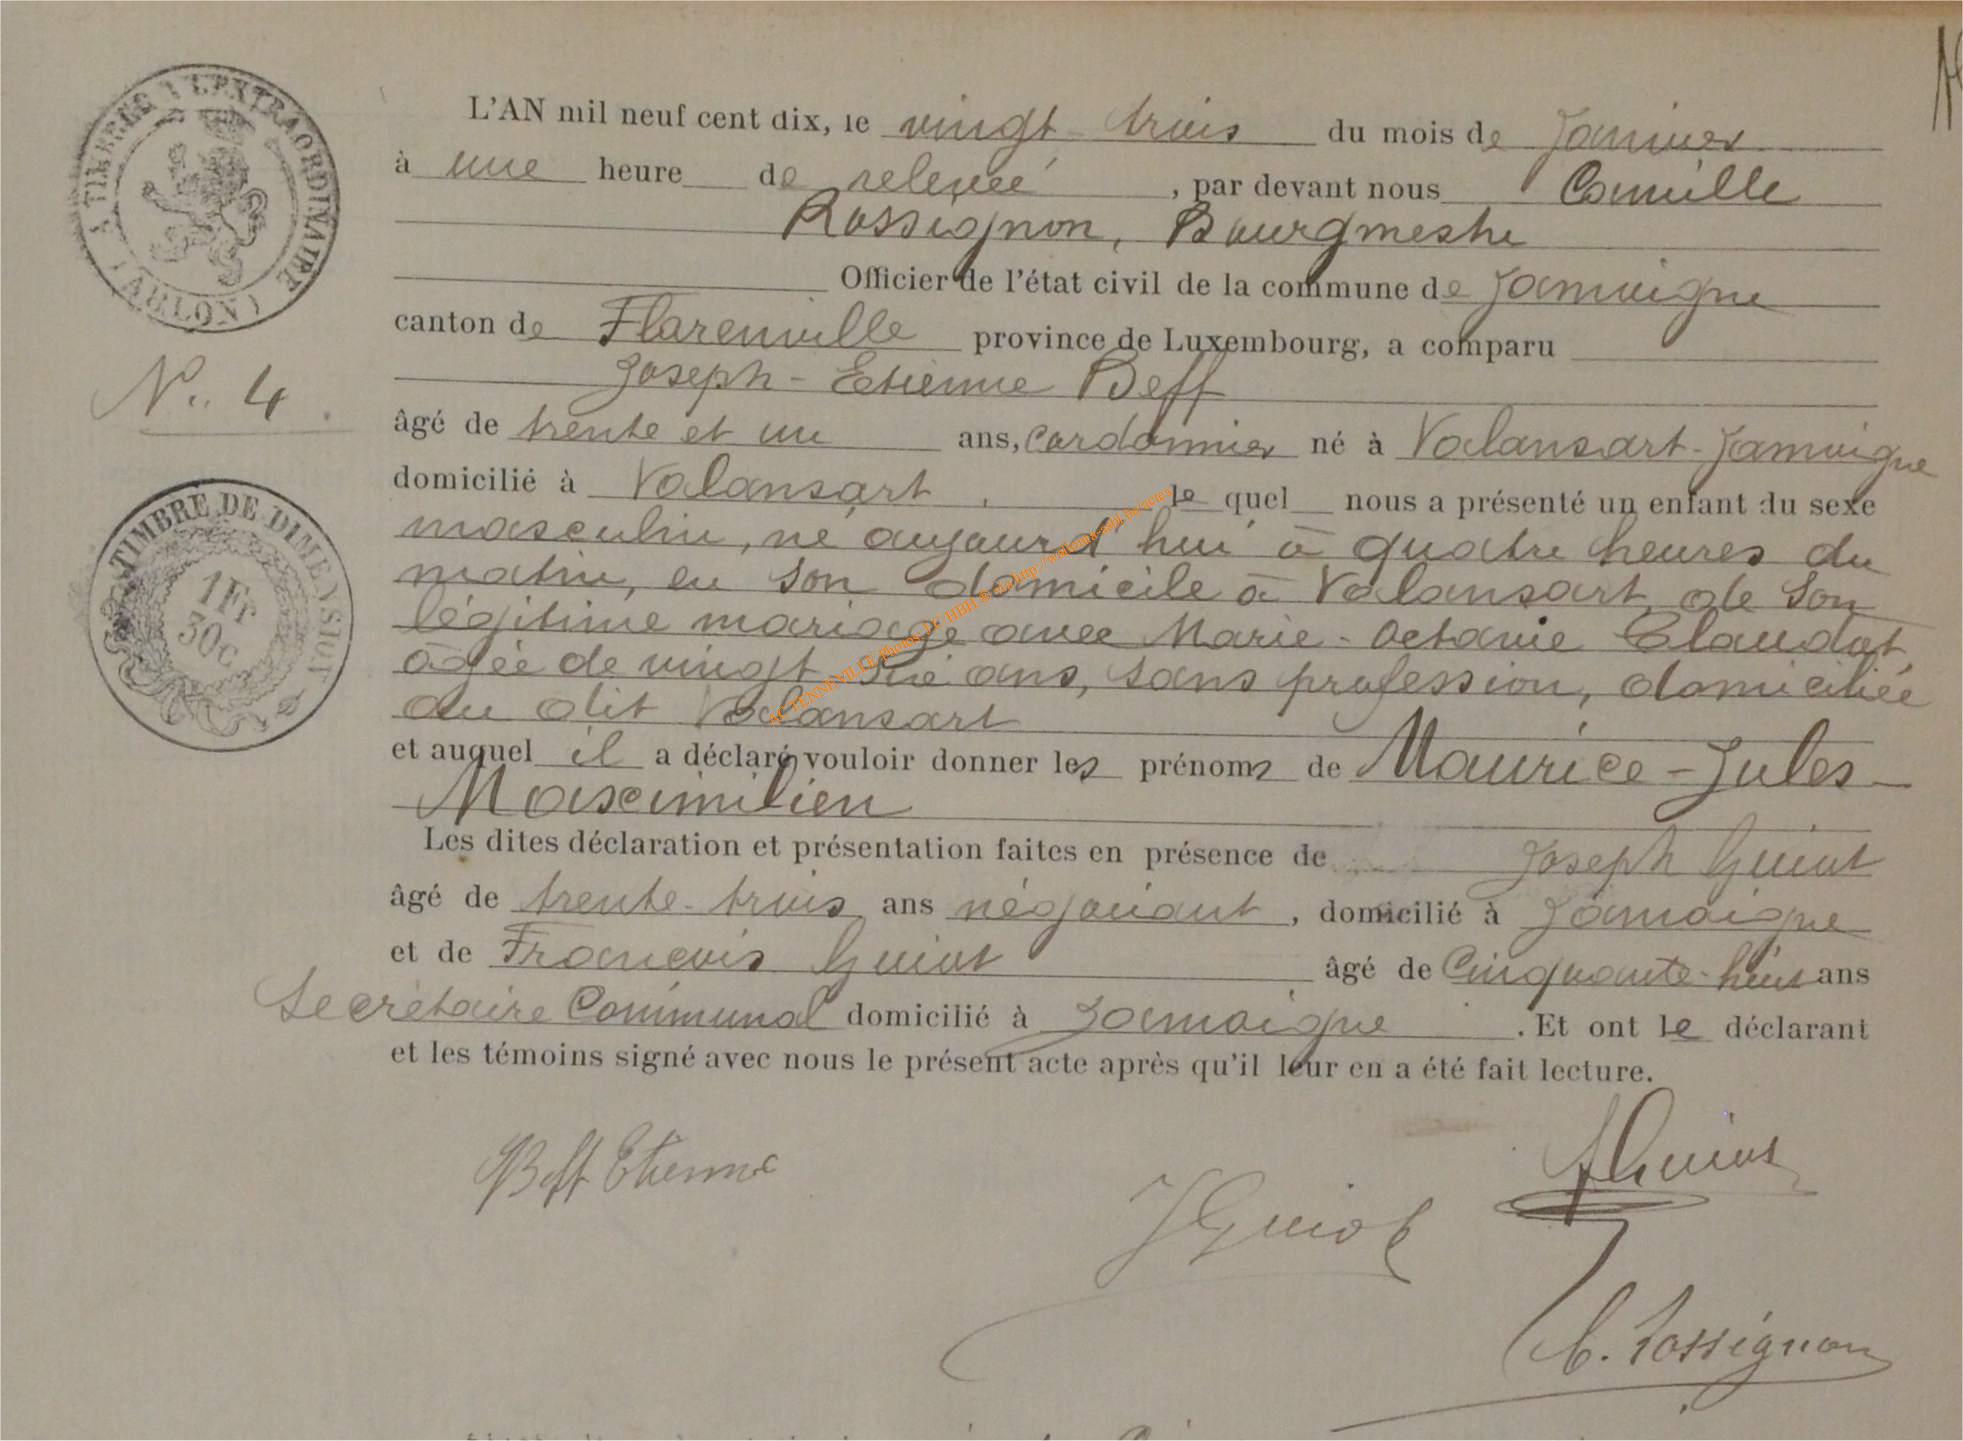 A TIMBRER A L'EXTRAORDINAIRE
( ARLON )
L'AN mil neuf cent dix, le vingt-trois du mois de Janvier
à une heure de relevée, par devant nous Camille
Rossignon, Bourgmestre
Officier de l'état civil de la commune de Jamoigne
canton de Florenville province de Luxembourg, a comparu
Joseph-Etienne Beff
N° 4.
âgé de trente et un ans, cordonnier né à Valansart-Jamoigne
domicilié à Valansart, le quel nous a présenté un enfant du sexe
masculin, né aujourd'hui à quatre heures du
matin, en son domicile à Valansart, de son
légitime mariage avec Marie-Octavie Claudot,
âgée de vingt ans, sans profession, domiciliée
au dit Valansart
TIMBRE DE DIMENSION
1 Fr
30 c
et auquel il a déclaré vouloir donner les prénoms de Maurice-Jules-
Maximilien
Les dites déclaration et présentation faites en présence de Joseph Guiot
âgé de trente-trois ans négociant, domicilié à Jamoigne
et de François Guiot âgé de Cinquante-huit ans
Secrétaire Communal domicilié à Jamoigne. Et ont le déclarant
et les témoins signé avec nous le présent acte après qu'il leur en a été fait lecture.
Beff Etienne
JGuiot
Guiot
C. Rossignon